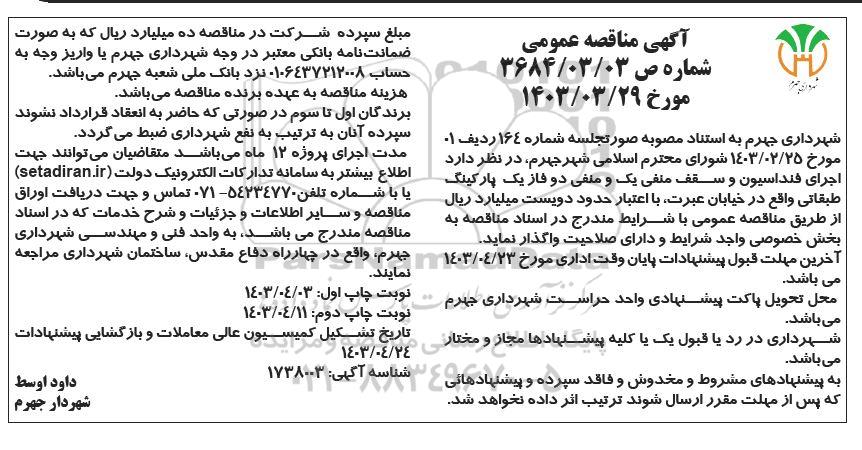 شهرداری جهرم
آگهی مناقصه عمومی
شماره ص ۳۶۸۴/۰۳/۰۳
مورخ ۱۴۰۳/۰۳/۲۹
شهرداری جهرم به استناد مصوبه صورتجلسه شماره ۱۶۴ ردیف ۰۱
مورخ ۱۴۰۳/۰۲/۲۵ شورای محترم اسلامی شهرجهرم، در نظر دارد
اجرای فنداسیون و سـقف منفی یک و منفی دو فاز یک پارکینگ
طبقاتی واقع در خیابان عبرت، با اعتبار حدود دویست میلیارد ریال
از طریق مناقصه عمومی با شـرایط مندرج در اسناد مناقصه به
بخش خصوصی واجد شرایط و دارای صلاحیت واگذار نماید.
آخرین مهلت قبول پیشنهادات پایان وقت اداری مورخ ۱۴۰۳/۰۴/۲۳
می باشد.
محل تحویل پاکت پیشـنهادی واحد حراسـت شهرداری جهرم
می‌باشد.
شـهرداری در رد یا قبول یک یا کلیه پیشـنهادها مجاز و مختار
می‌باشد.
به پیشنهادهای مشروط و مخدوش و فاقد سپرده و پیشنهادهائی
که پس از مهلت مقرر ارسال شوند ترتیب اثر داده نخواهد شد.
مبلغ سپرده شـرکت در مناقصه ده میلیارد ریال که به صورت
ضمانت‌نامه بانکی معتبر در وجه شهرداری جهرم یا واریز وجه به
حساب ۰۱۰۶۴۳۷۲۱۲۰۰۸ نزد بانک ملی شعبه جهرم می‌باشد.
هزینه مناقصه به عهده برنده مناقصه می‌باشد.
برندگان اول تا سوم در صورتی که حاضر به انعقاد قرارداد نشوند
سپرده آنان به ترتیب به نفع شهرداری ضبط می‌گردد.
مدت اجرای پروژه ۱۲ ماه می‌باشـد متقاضیان می‌توانند جهت
اطلاع بیشتر به سامانه تدارکات الکترونیک دولت (setadiran.ir)
یا با شـماره تلفن ۵۴۲۳۴۷۷۰-۰۷۱ تماس و جهت دریافت اوراق
مناقصه و سـایر اطلاعات و جزئیات و شرح خدمات که در اسناد
مناقصه مندرج می باشـد، به واحد فنی و مهندسـی شهرداری
جهرم، واقع در چهارراه دفاع مقدس، ساختمان شهرداری مراجعه
نمایند.
نوبت چاپ اول: ۱۴۰۳/۰۴/۰۳
نوبت چاپ دوم: ۱۴۰۳/۰۴/۱۱
تاریخ تشـکیل کمیسـیون عالی معاملات و بازگشایی پیشنهادات
۱۴۰۳/۰۴/۲۴
شناسه آگهی: ۱۷۳۸۰۰۳
داود اوسط
شهردار جهرم
ParsNamadData
پایگاه اطلاع رسانی مناقصه و مزایده
۰۲۱-۸۸۳۴۹۶۷۰-۵